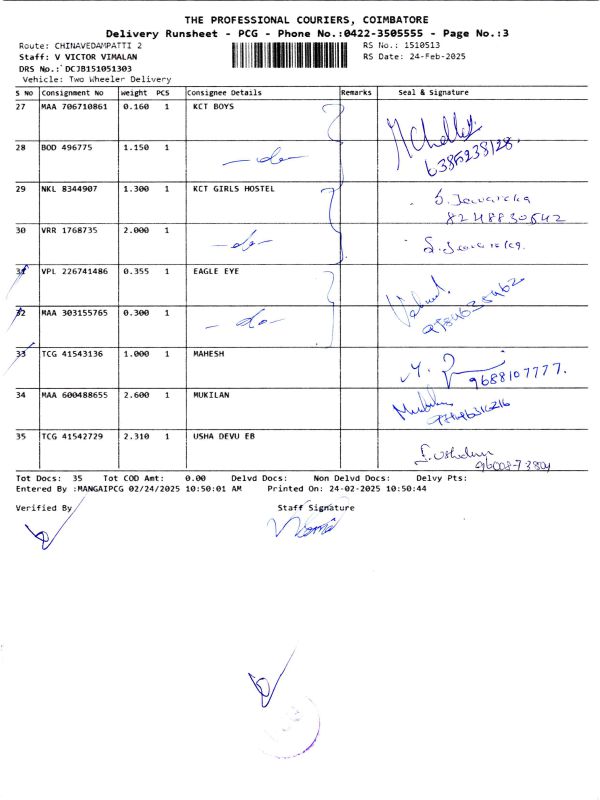 THE PROFESSIONAL COURIERS, COIMBATORE
Delivery Runsheet - PCG - Phone No.:0422-3505555 - Page No.:3
Route: CHINAVEDAMPATTI 2
RS No.: 1510513
Staff: V VICTOR VIMALAN
RS Date: 24-Feb-2025
DRS No.: DCJB151051303
Vehicle: Two Wheeler Delivery
S No Consignment No Weight PCS Consignee Details Remarks Seal & Signature
27 MAA 706710861 0.160 1 KCT BOYS
28 BOD 496775 1.150 1 -do-
6385238128.
29 NKL 8344907 1.300 1 KCT GIRLS HOSTEL
8248830542
30 VRR 1768735 2.000 1 -do-
31 VPL 226741486 0.355 1 EAGLE EYE
32 MAA 303155765 0.300 1 -do-
33 TCG 41543136 1.000 1 MAHESH
9688107777.
34 MAA 600488655 2.600 1 MUKILAN
35 TCG 41542729 2.310 1 USHA DEVU EB
Tot Docs: 35 Tot COD Amt: 0.00 Delvd Docs: Non Delvd Docs: Delvy Pts:
Entered By :MANGAIPCG 02/24/2025 10:50:01 AM Printed On: 24-02-2025 10:50:44
Verified By
Staff Signature